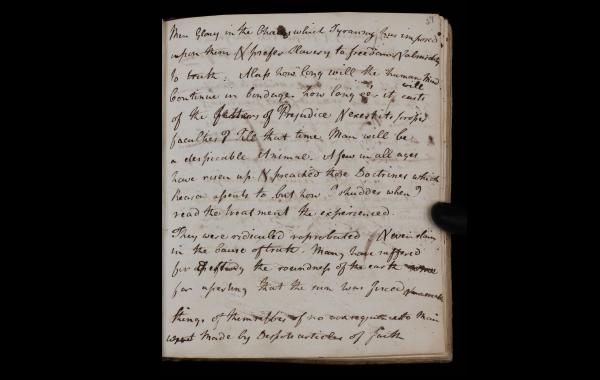 51
Men Glory in the Chains which Tyranny has imposed
upon them & prefer Slavery to freedom &
to truth. Alass how long will the human Mind
Continue in bondage how long will it casts
of the fetters of Prejudice & exert its proper
faculties? Till that time Man will be
a despicable Animal. A few in all ages
have risen up & preached those Doctrines which
Reason assents to but how I shudder when I
read the treatment the experienced.
They were ridiculed reprobated & even slain
in the Cause of truth. Many have suffered
for asserting the roundness of the earth some
for asserting that the sun was fixed
things of themselves of no consequence to Man
Made by Despots articles of faith